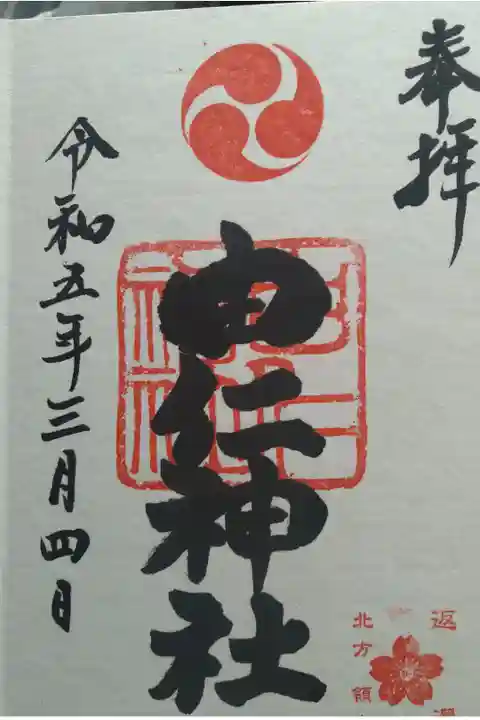 奉拝
由仁神社
令和五年三月四日
返
北方領